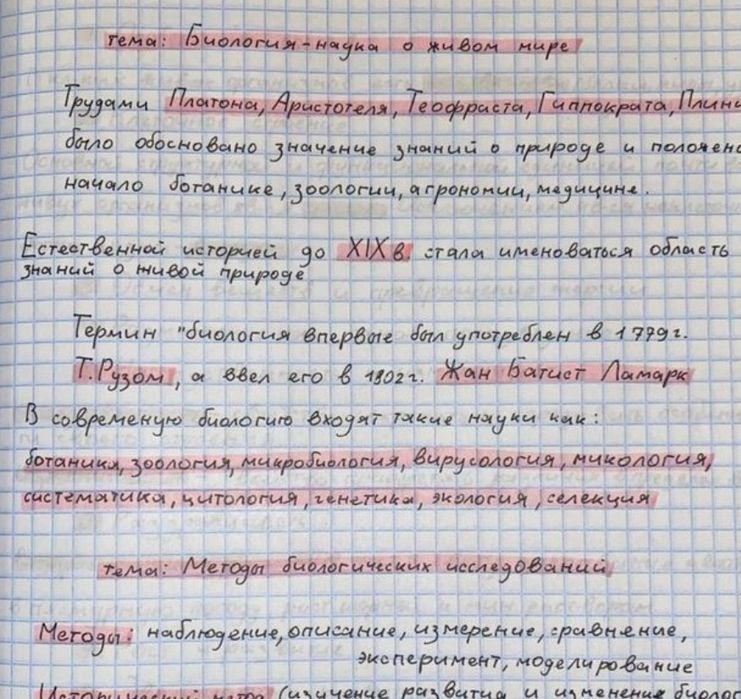 тема: Биология-наука о живом мире
Трудами Платона, Аристотеля, Теофраста, Гиппократа, Плини
было обосновано значение знаний о природе и положено
начало ботанике, зоологии, агрономии, медицине.
Естественной историей до XIX в. стала именоваться область
знаний о живой природе
Термин "биология впервые был употреблен в 1779г.
Т.Рузом, а ввел его в 1802г. Жан Батист Ламарк
В современую биологию входят такие науки как:
ботаника, зоология, микробиология, вирусология, микология,
систематика, цитология, генетика, экология, селекция
тема: Методы биологических исследований
Методы: наблюдение, описание, измерение, сравнение,
эксперимент, моделирование
Исторический метод (изучение развития и изменение биолог